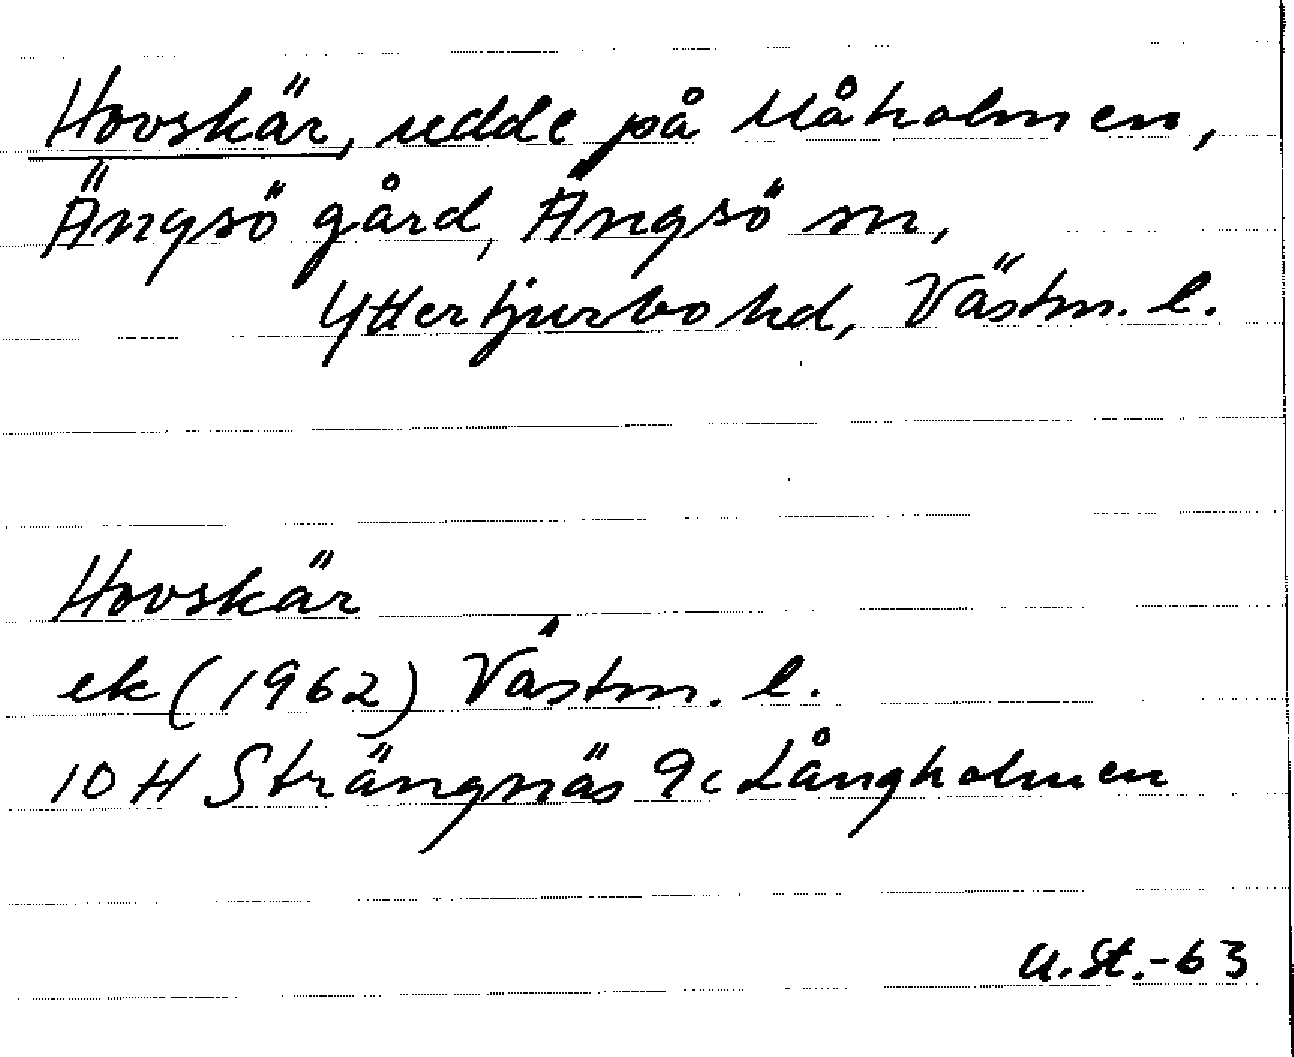 Hovskär, udde på Måholmen,
Ängsö gård, Ängsö sn,
Yttertjurbo hd, Västm. l.
Hovskär
ek (1962) Västm. l.
10 H Strängnäs 9c Långholmen
U.St.-63